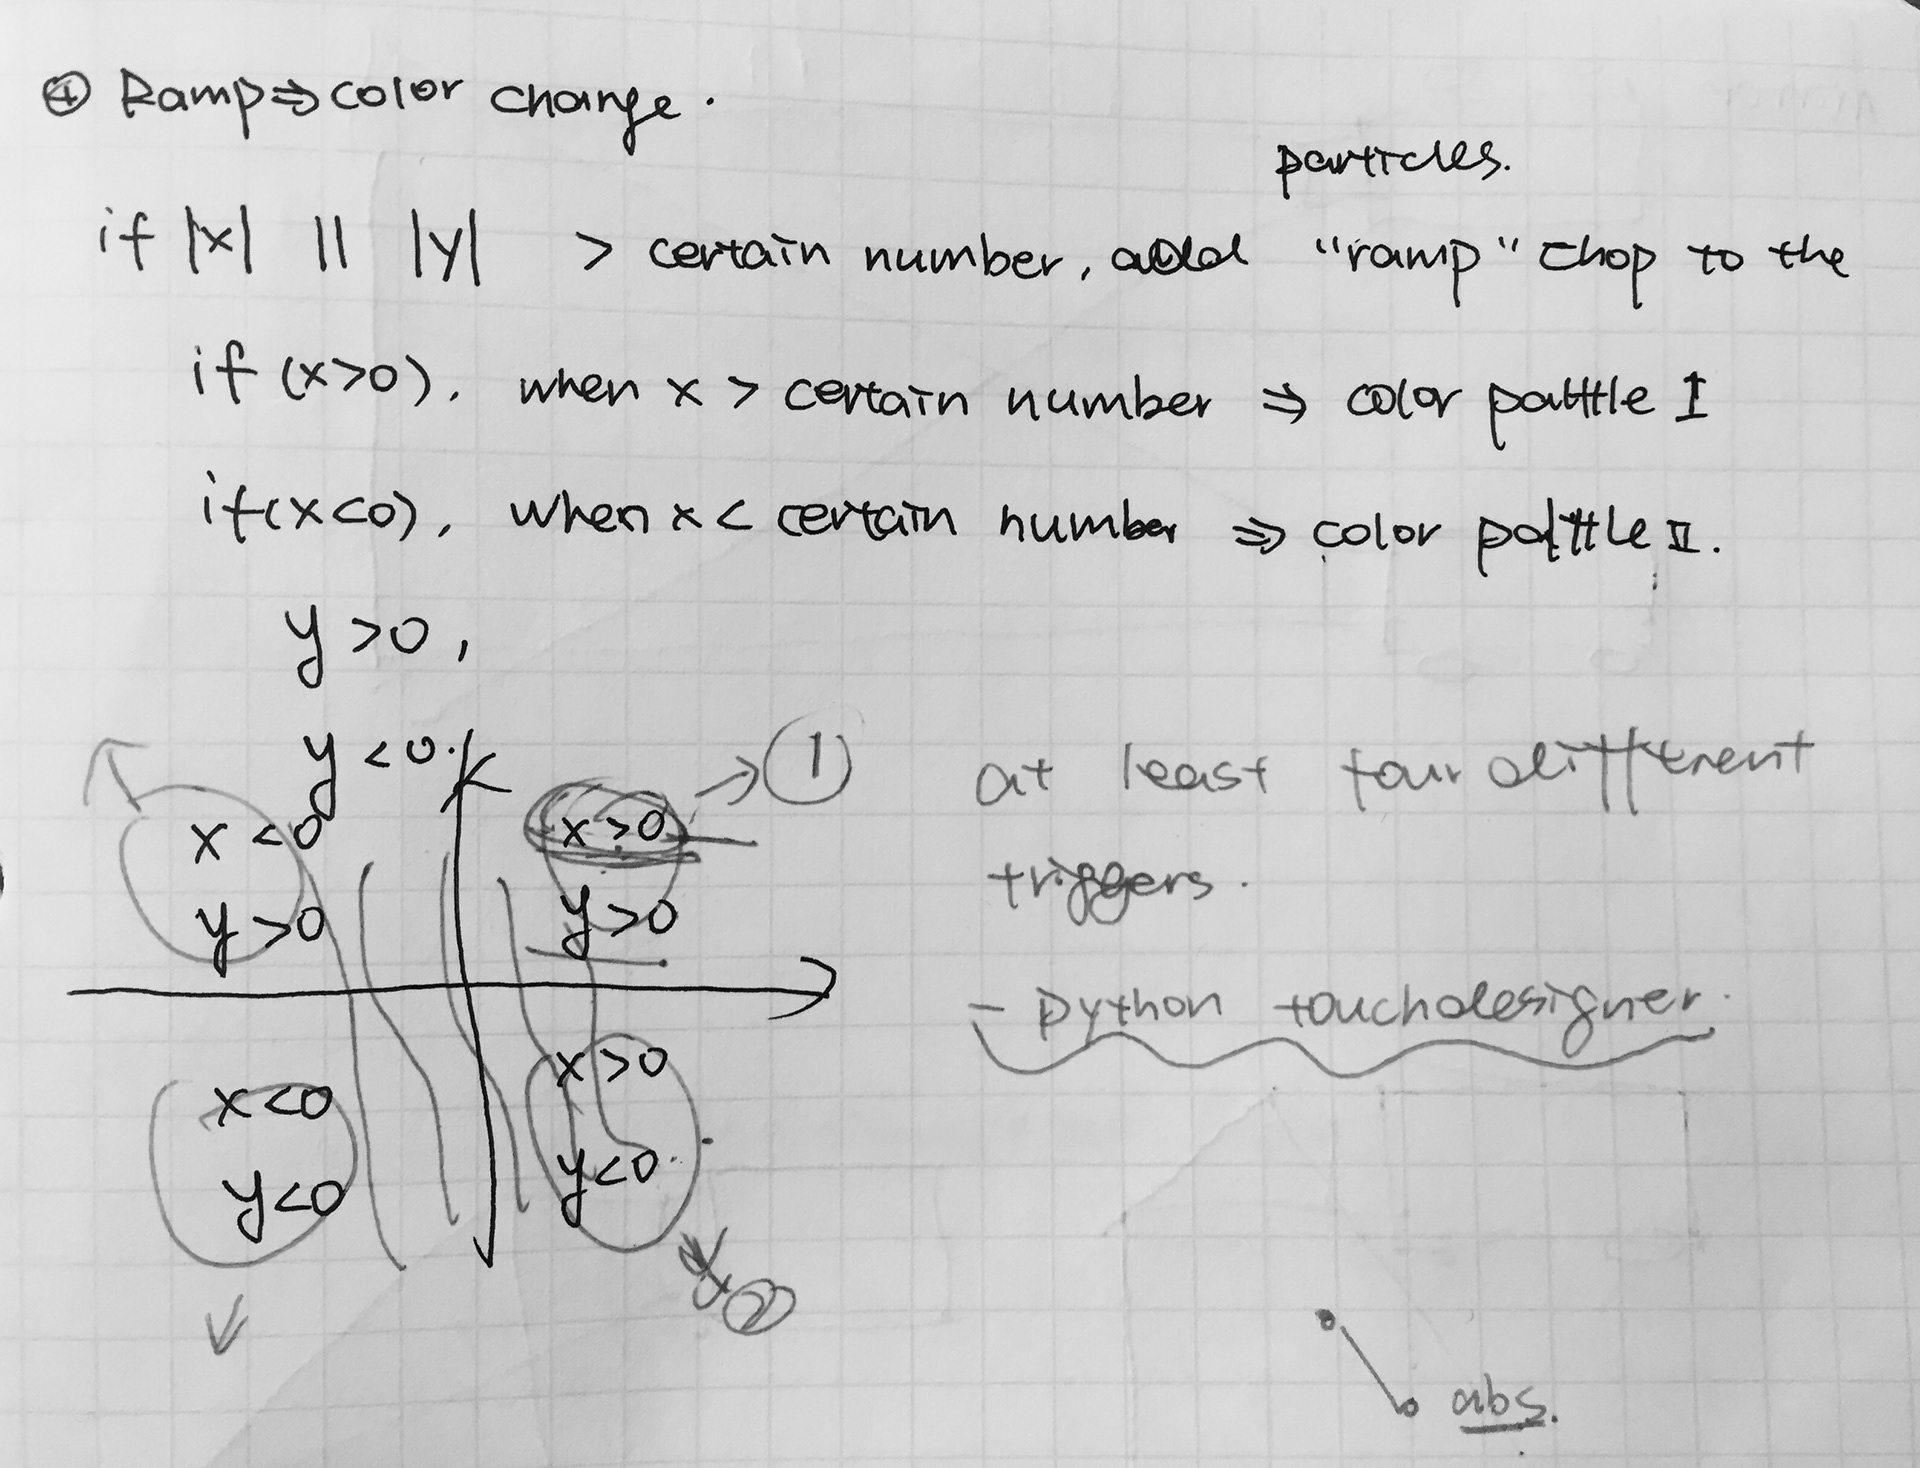 ④ Ramp⇒color change.
particles.
if |x| || |y| > certain number, add "ramp" chop to the
if (x>0), when x > certain number ⇒ color pattle I
if(x<0), when x < certain number ⇒ color pattle II.
y>0,
y<0.
x<0
y>0
x>0
y>0
①
at least four different
triggers.
- python touchdesigner.
x<0
y<0
x>0
y<0.
②
abs.